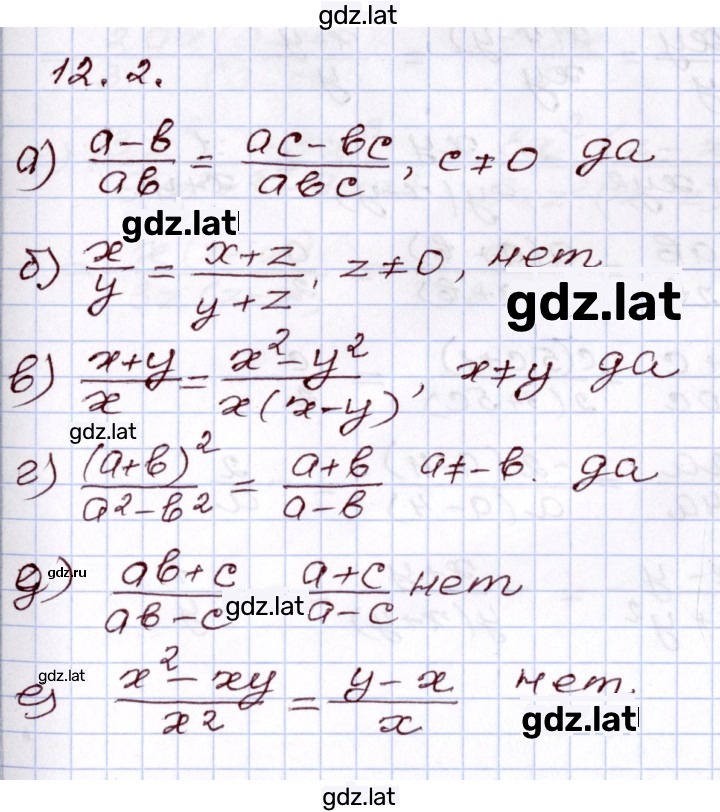 gdz.lat
12.2.
а) (a-b)/(ab) = (ac-bc)/(abc), c≠0 да
gdz.lat
б) x/y = (x+z)/(y+z), z≠0, нет
gdz.lat
в) (x+y)/x = (x²-y²)/(x(x-y)), x≠y да
gdz.lat
г) (a+b)²/(a²-b²) = (a+b)/(a-b) a≠-b. да
д) (ab+c)/(ab-c) (a+c)/(a-c) нет
gdz.ru
gdz.lat
gdz.lat
е) (x²-xy)/x² = (y-x)/x нет.
gdz.lat
gdz.lat